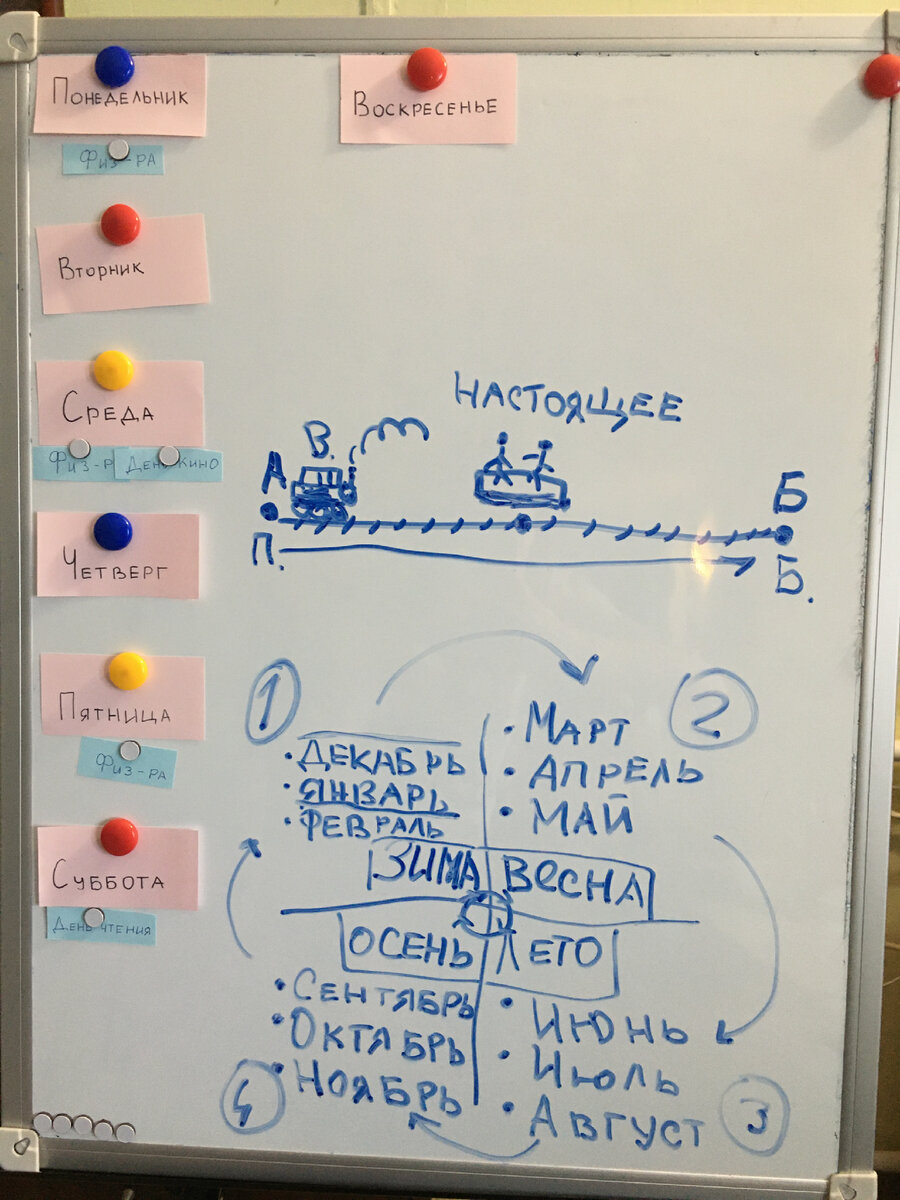 Понедельник
Физ-ра
Вторник
Среда
Физ-р
День кино
Четверг
Пятница
Физ-ра
Суббота
День чтения
Воскресенье
НАСТОЯЩЕЕ
В.
А
Б
П.
Б.
1
ДЕКАБРЬ
ЯНВАРЬ
ФЕВРАЛЬ
ЗИМА
2
МАРТ
АПРЕЛЬ
МАЙ
ВЕСНА
ОСЕНЬ
СЕНТЯБРЬ
ОКТЯБРЬ
НОЯБРЬ
4
ЛЕТО
ИЮНЬ
ИЮЛЬ
АВГУСТ
3